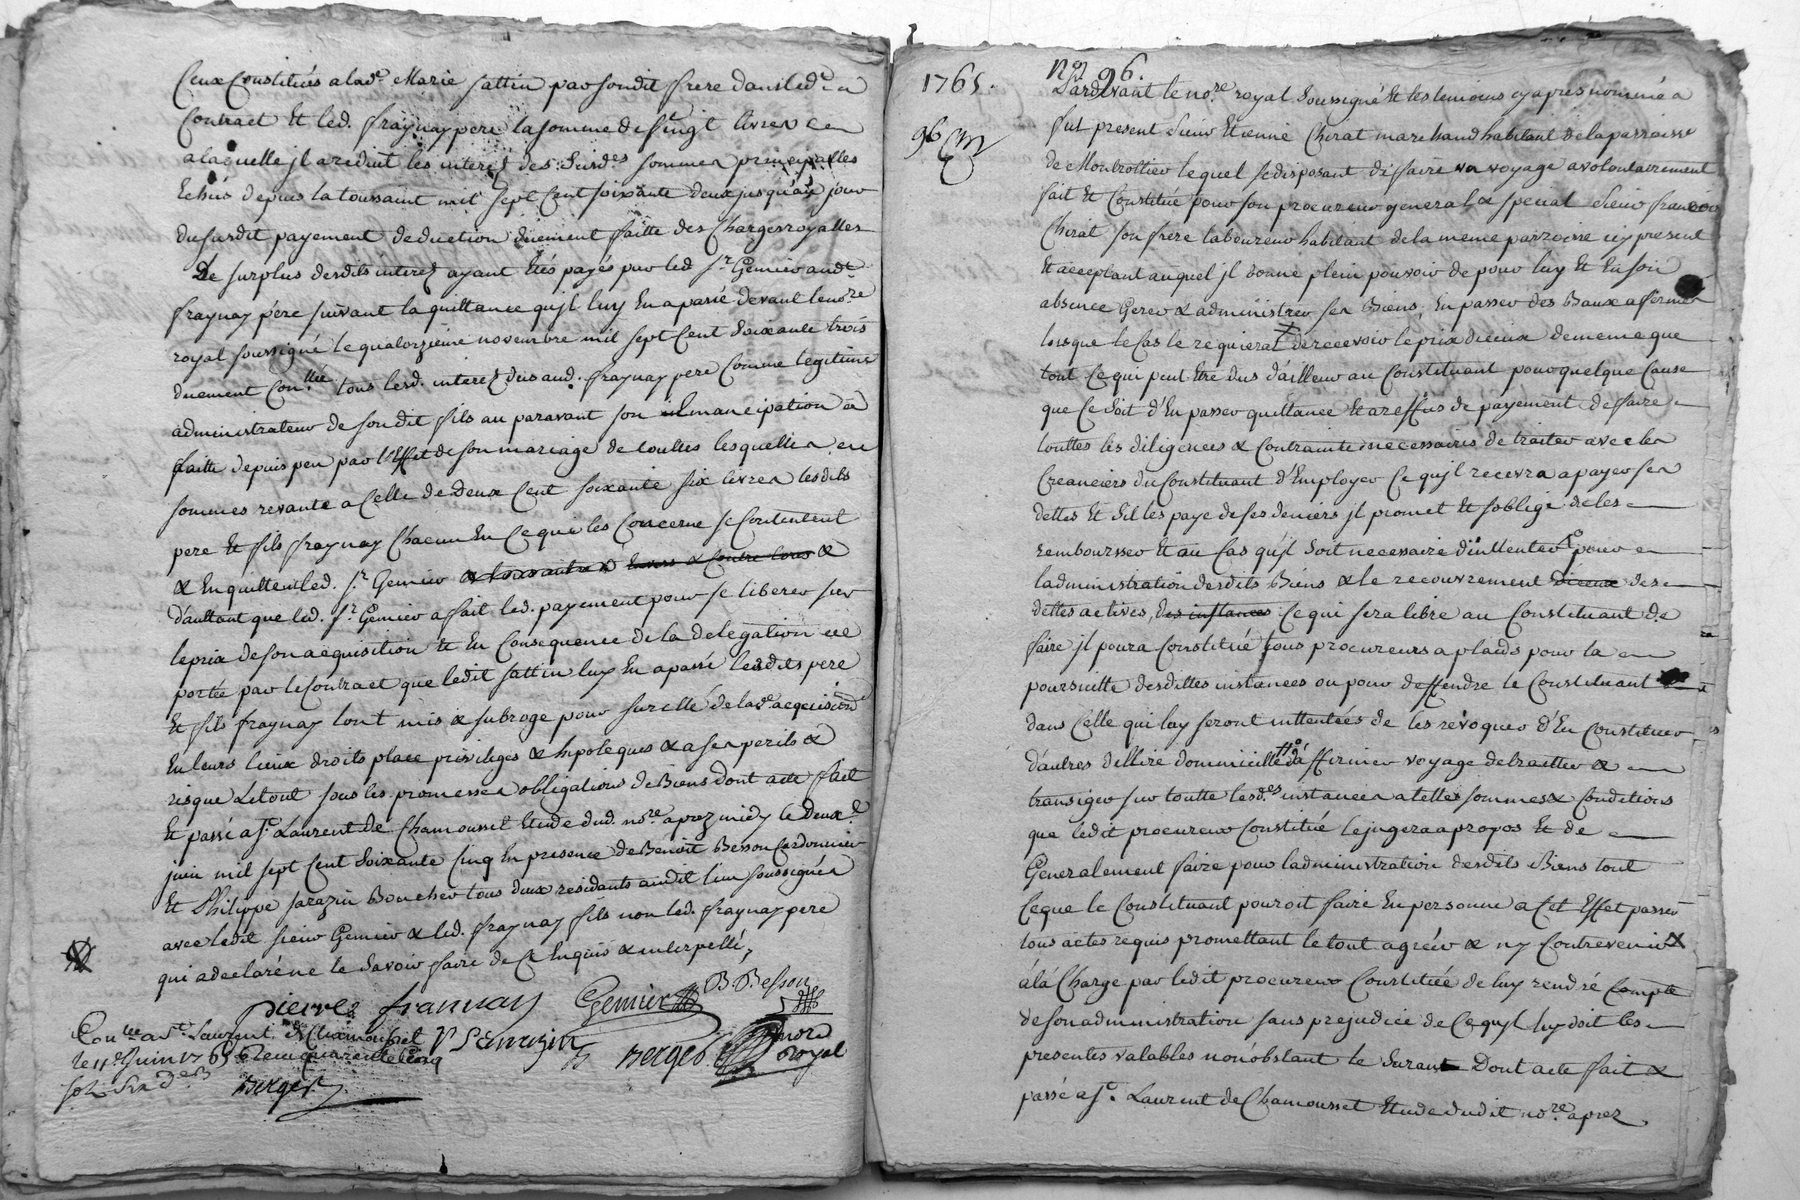 Ceux Constitués a lad.e Marie fattin par sondit frere dans led.
Contract Et led. fraynay pere la somme de vingt livres
a laquelle jl a reduit les interez des susd.es sommes principalles
Echus depuis la toussaint mil sept Cent soixante deux jusqu'au jour
dususdit payement deduction duement faitte des Charges royalles
Le surplus desdits interez ayant étés payés par led. s.r Gemier aud.t
fraynay pére suivant la quittance qu'jl luy En a passé devant le no.re
royal soussigné le quatorzieme novembre mil sept Cent soixante trois
duement Con.llée tous lesd. interez dus aud. fraynay pere Comme legitime
administrateur de son dit fils au paravant son emancipation
faitte depuis peu par l'Effet de son mariage de touttes lesquelles
sommes revante a Celle de Deux Cent soixante six livres lesdits
pere Et fils fraynay Chacun En Ce que les Concerne se Contentent
& En quittent led. s.r Gemier Envers & Contre tous &
d'auttant que led. s.r Gemier a fait led. payement pour se liberer sur
le prix de son acquisition Et En Consequence de la delegation
portée par le Contract que ledit fattin luy En a passé lesdits pere
Et fils fraynay l'ont mis & subrogé pour sureté de lad.e acquisition
En leurs lieux droits place privileges & hipoteques & a ses perils &
risque Le tout sous les promesses obligation de Biens dont acte fait
Et passé a S.t Laurent de Chamousset Etude dud. no.re aprez midy le Deux
juin mil sept Cent soixante Cinq En presence de Benoit Besson Cordonnier
Et Philippe sarazin Boucher tous deux residants audit lieu soussignés
avec ledit sieur Gemier & led. fraynay fils non led. fraynay pere
qui a declaré ne le savoir faire de Ce Enquis & interpellé,
pierre frannay Gemier B. Besson
P Sarazin Berger no.re Royal
Con.llé a S.t Laurent de Chamousset
le 11 juin 1765 Recu quarente Cinq
sols six d.ers
Berger
1765.
N.o 96.
96
Pardevant le no.re royal soussigné Et les temoins cy apres nommés
fut present sieur Etienne Cherat marchand habitant de la parroisse
de Montrottier lequel se disposant de faire un voyage a volontairement
fait Et Constitué pour son procureur general & special sieur francois
Chirat son frere laboureur habitant de la meme parroisse icy present
Et acceptant auquel jl donne plein pouvoir de pour luy Et En son
absence Gerer & administrer ses Biens, En passer des Baux a ferme
lorsque le Cas le requierat de recevoir le prix diceux de meme que
tout Ce qui peut Etre dus d'ailleur au Constituant pour quelque Cause
que Ce soit d'En passer quittance Et a reffus de payement de faire
touttes les diligences & Contrainte necessaires de traiter avec les
Creanciers du Constituant d'Employer Ce qu'jl recevra a payer ses
dettes Et s'il les paye de ses deniers jl promet Et s'oblige de les
rembourser Et au Cas qu'jl soit necessaire d'inttenter pour
l'administration desdits Biens & le recouvrement diceux des
dettes actives, des instances Ce qui sera libre au Constituant de
faire jl poura Constitué tous procureurs a plaids pour la
poursuitte desdittes instances ou pour deffendre le Constituant
dans Celle qui luy seront inttentées de les révoquer d'En Constituer
d'autres d'ellire dommicille d'affirmer voyage de traitter &
transiger sur toutte lesd.es instances a telles sommes & Conditions
que ledit procureur Constitué le jugera apropos Et de
Generalement faire pour l'administration desdits Biens tout
Ce que le Constituant pouroit faire En personne a Cet Effet passer
tous actes requis promettant le tout agréer & ny Contrevenir
a la Charge par ledit procureur Constituée de luy rendre Compte
de son administration sans prejudice de Ce qu'jl luy doit les
presentes valables non obstant le surant Dont acte fait &
passé a S.t Laurent de Chamousset Etude dudit no.re aprez